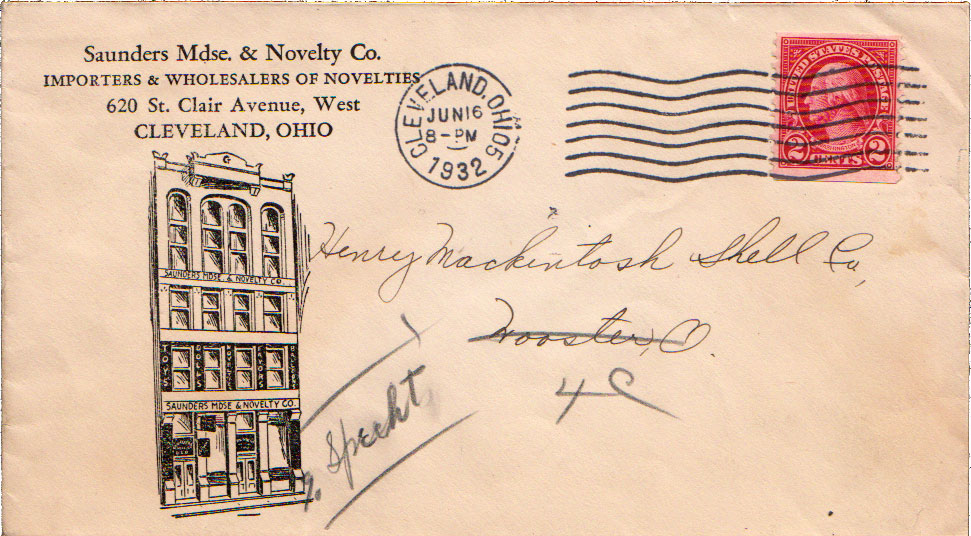 Saunders Mdse. & Novelty Co.
IMPORTERS & WHOLESALERS OF NOVELTIES
620 St. Clair Avenue, West
CLEVELAND, OHIO
CLEVELAND, OHIO
JUN 16
8-PM
1932
UNITED STATES POSTAGE
2 CENTS 2
G
SAUNDERS MDSE. & NOVELTY CO.
TOYS DOLLS NOVELTIES FAVORS BALLOONS
SAUNDERS MDSE & NOVELTY CO.
Henry Mackintosh Shell Co,
Wooster, O.
4C
Specht